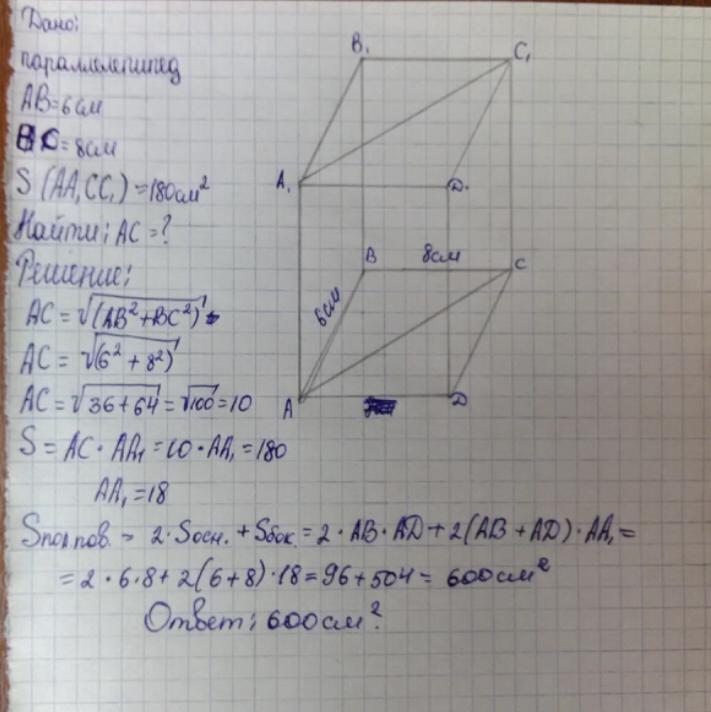 Дано:
параллелепипед
AB=6см
BC=8см
S(AA₁CC₁)=180см²
Найти: AC=?
Решение:
AC=√(AB²+BC²)
AC=√(6²+8²)
AC=√36+64=√100=10
S=AC·AA₁=10·AA₁=180
AA₁=18
Sпол.пов.=2·Sосн.+Sбок.=2·AB·AD+2(AB+AD)·AA₁=
=2·6·8+2(6+8)·18=96+504=600см²
Ответ: 600см²
B₁
C₁
A₁
D₁
B
8см
C
6см
A
D